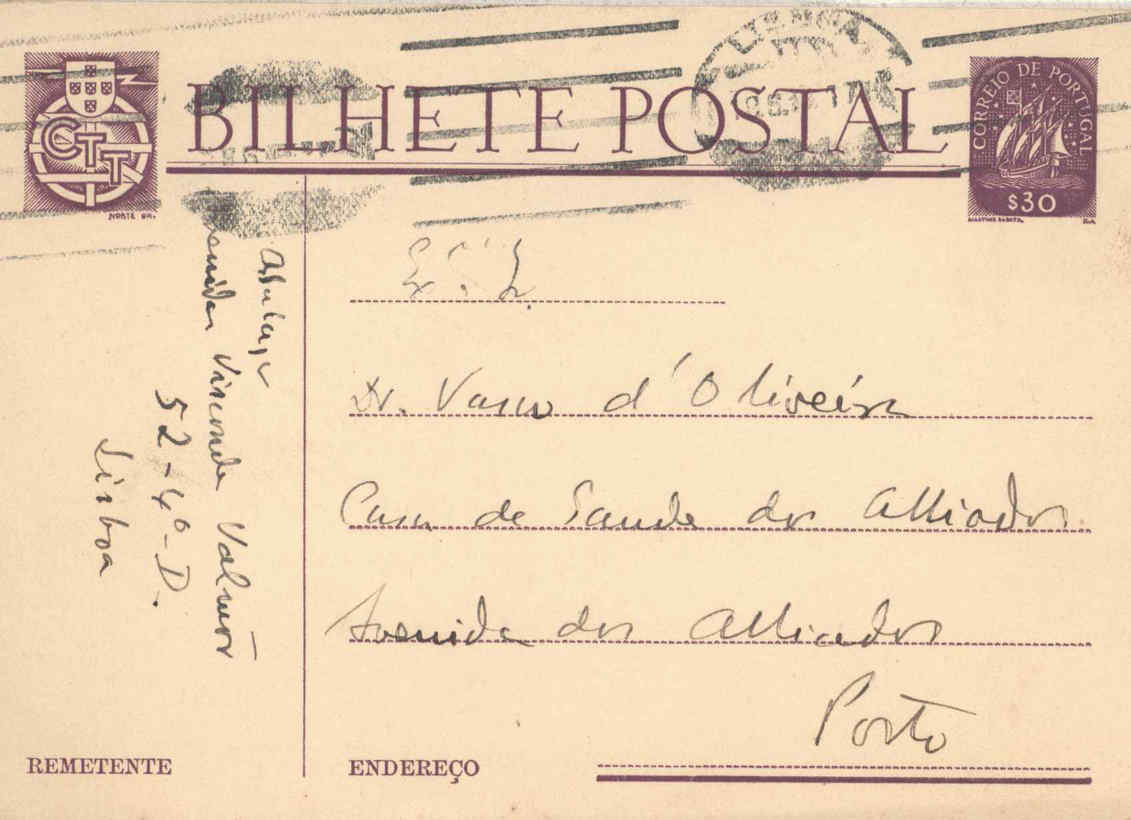 CTT
NORTE GR.
BILHETE POSTAL
LISBOA
CORREIO DE PORTUGAL
$30
Dr. Vasco d'Oliveira
Casa de Saude dos Alliados
Avenida dos Alliados
Porto
Avenida Visconde Valmôr
52-4º-D.
Lisboa
REMETENTE
ENDEREÇO